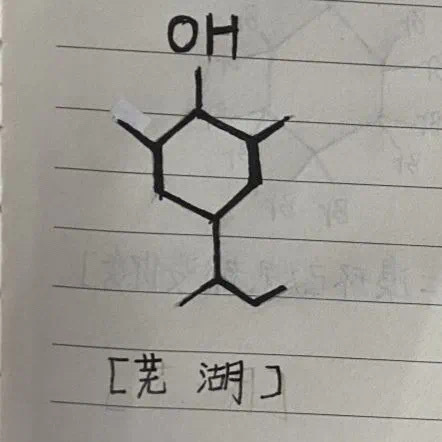 OH
[芜 湖]